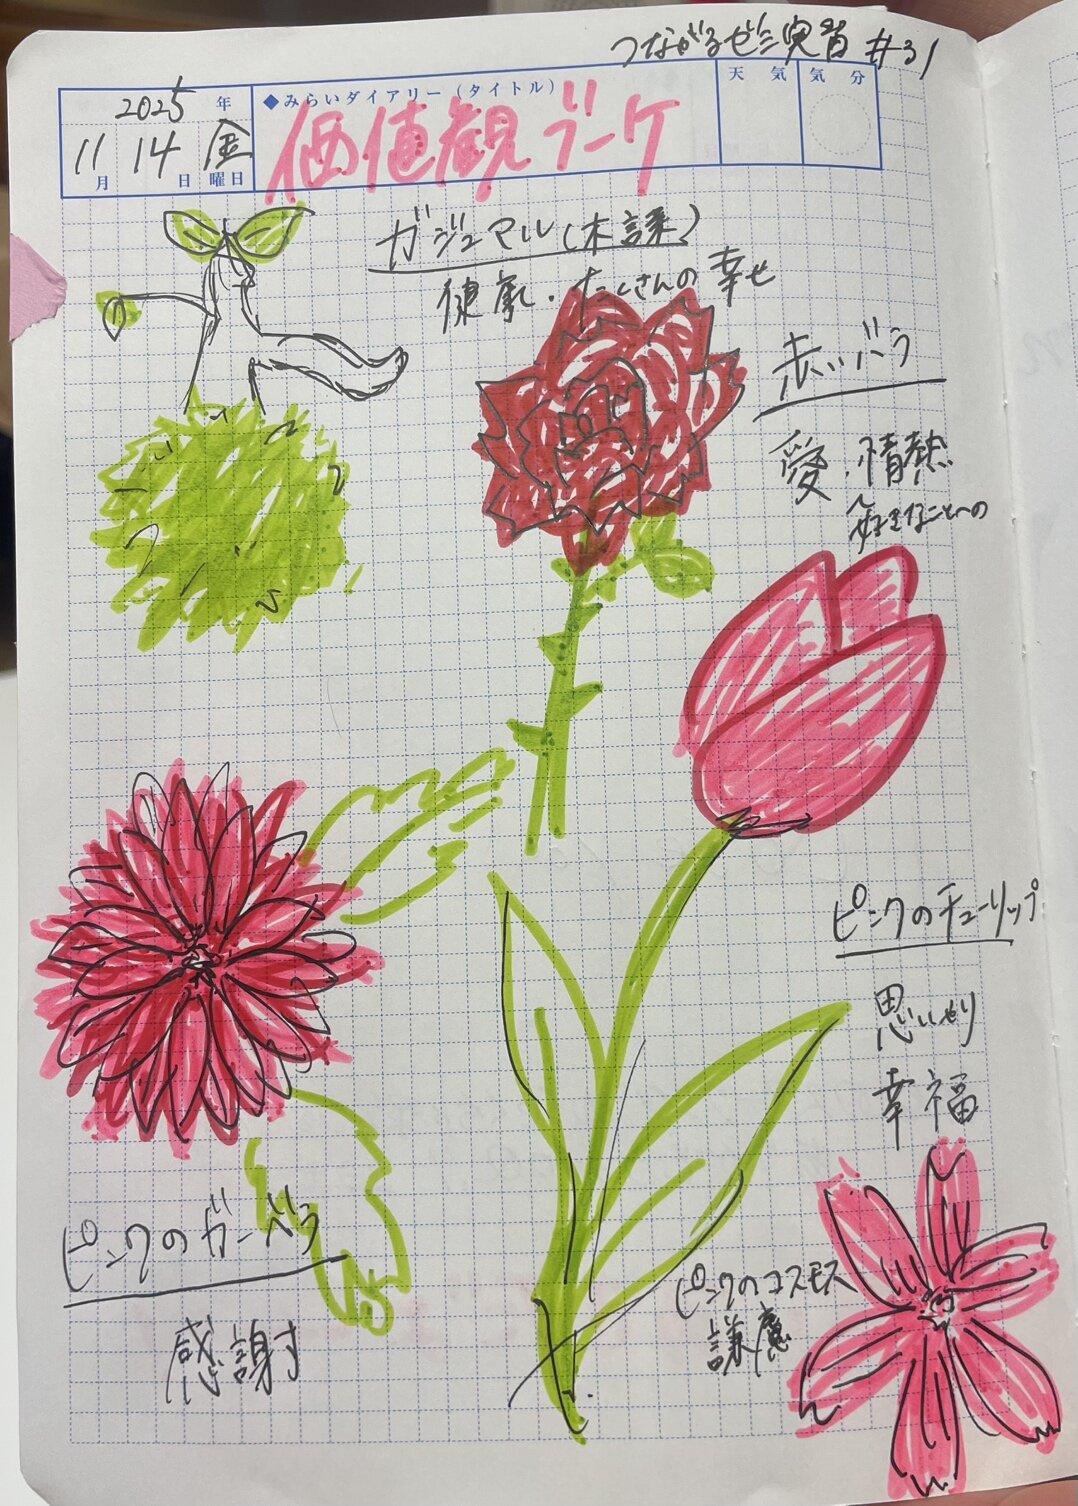 つながるゼミ実習 #31
2025年
11月14日金曜日
◆みらいダイアリー（タイトル）
天 気
気 分
価値観ブーケ
ガジュマル(木謀)
健康・たくさんの幸せ
赤いバラ
愛・情熱
好きなことへの
ピンクのチューリップ
思いやり
幸福
ピンクのガーベラ
感謝
ピンクのコスモス
謙虚